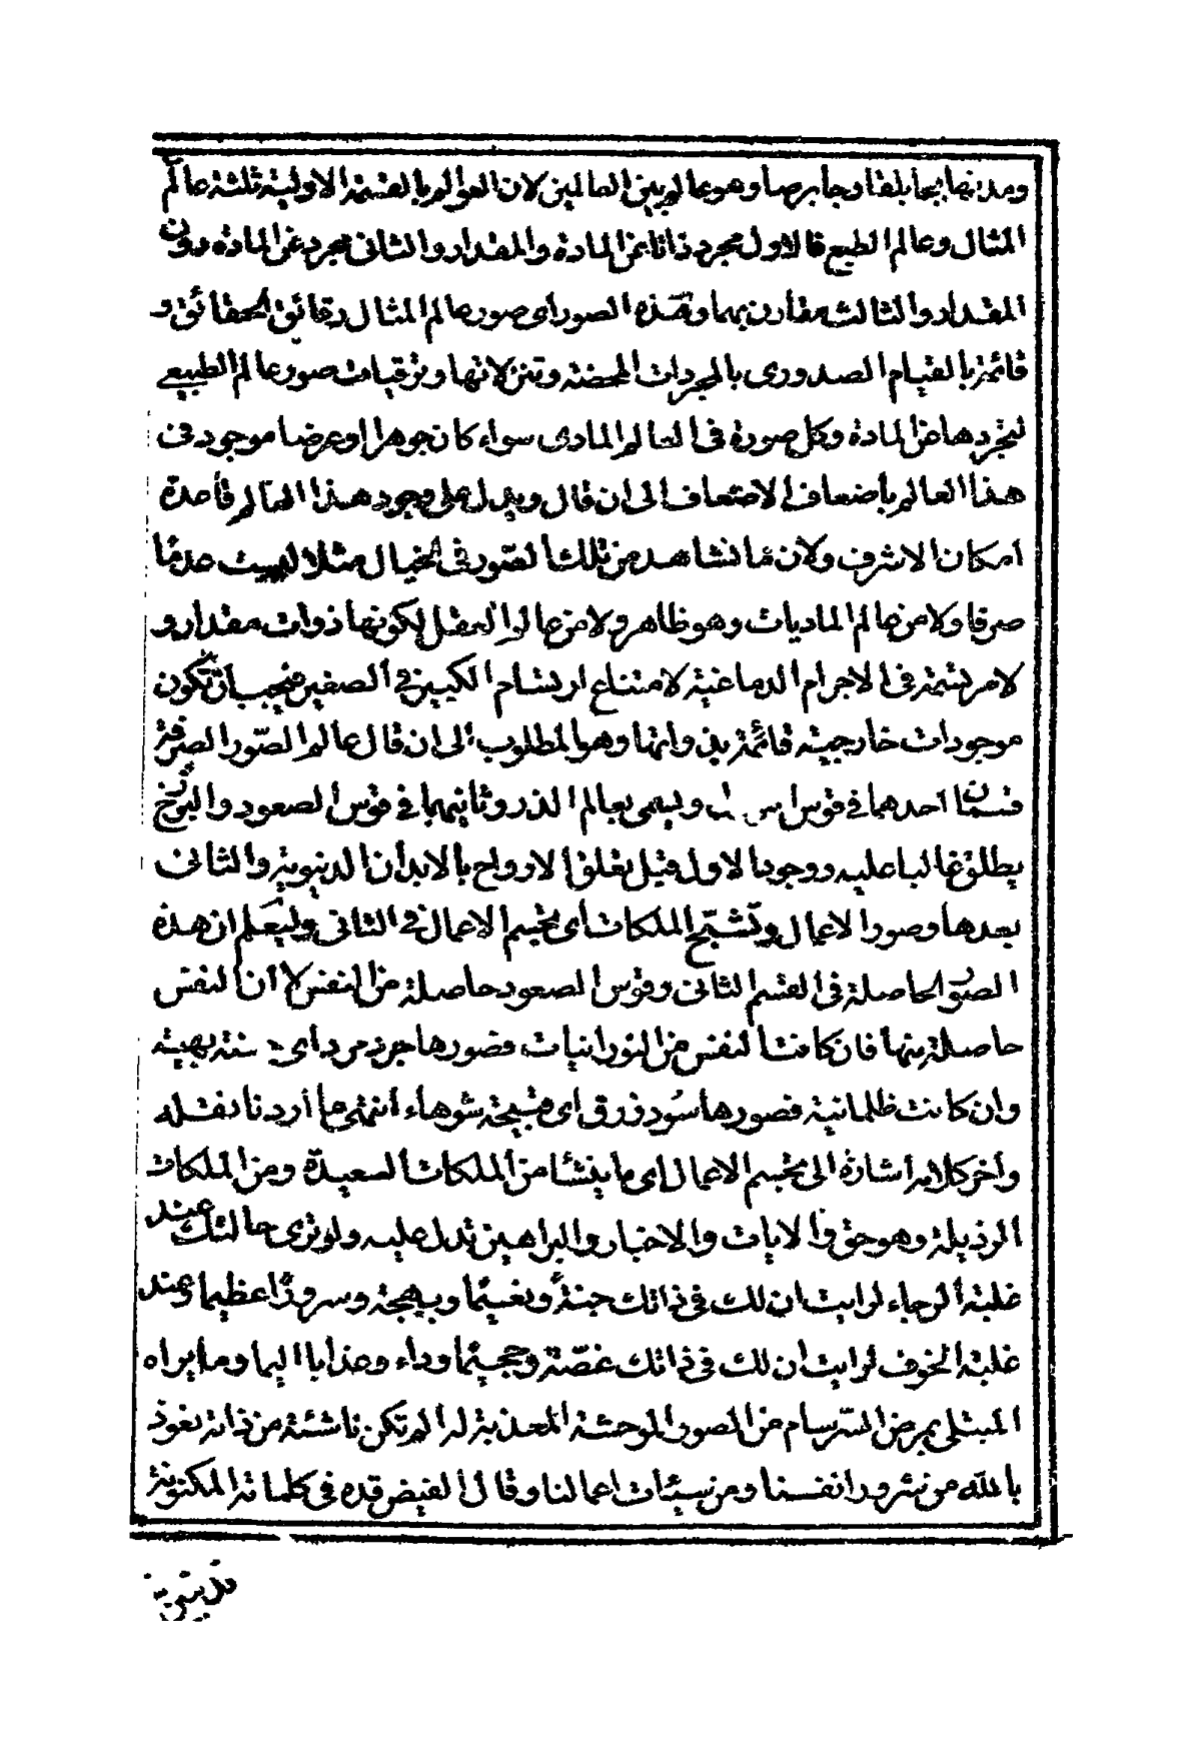 ومدنها بجابلقا وجابرصا وهو عالم بين العالمين لان العوالم بالقسمة الاولية ثلثة عالم
المثال وعالم الطبع فالاول مجرد ذاتا عن المادة والمقدار والثانى مجرد عن المادة دون
المقدار والثالث مقارن بهما وهذه الصور اى صور عالم المثال رقائق الحقائق و
قائمة بالقيام الصدورى بالمجردات المحضة وتنزلاتها وترقيات صور عالم الطبيعى
لتجردها عن المادة وكل صورة فى العالم المادى سواء كان جوهرا او عرضا موجود فى
هذا العالم بأضعاف الاضعاف الى ان قال ويدل على وجود هذا العالم قاعدة
امكان الاشرف ولان ما نشاهد من تلك الصور فى الخيال مثلا ليست عدما
صرفا ولا من عالم الماديات وهو ظاهر ولا من عالم العقل لكونها ذوات مقدار و
لا مرتسمة فى الاجرام الدماغية لامتناع ارتسام الكبير فى الصغير فيجب ان تكون
موجودات خارجية قائمة بذواتها وهو المطلوب الى ان قال عالم الصور الصرفة
قسمان احدهما فى قوس ويسمى بعالم الذر وثانيهما فى قوس الصعود والبرزخ
يطلق غالبا عليه ووجود الاول قبل تعلق الارواح بالابدان الدنيوية والثانى
بعدها وصور الاعمال وتشبح الملكات أى تجسم الاعمال فى الثانى وليعلم ان هذه
الصور الحاصلة فى القسم الثانى وقوس الصعود حاصلة من النفس لا ان النفس
حاصلة منها فان كانت النفس من النورانيات فصورها جرد مرد اى حسنة بهية
وان كانت ظلمانية فصورها سود زرق اى قبيحة شوهاء انتهى ما أردنا نقله
وأخر كلامه أشارة الى تجسم الاعمال اى ما ينشأ من الملكات السعيدة ومن الملكات
الرذيلة وهو حق والايات والاخبار والبراهين تدل عليه ولو ترى حالتك عند
غلبة الرجاء لرايت ان لك فى ذاتك جنة ونعيما وبهجة وسرورا عظيما وعند
غلبة الخوف لرايت ان لك فى ذاتك غصة وجحيما وداء وعذابا اليما وما يراه
المبتلى بمرض السرسام من الصور الموحشة المعذبة له الم تكن ناشئة من ذاته نعوذ
بالله من شرور انفسنا ومن سيئات اعمالنا وقال الفيض قده فى كلماته المكنونة